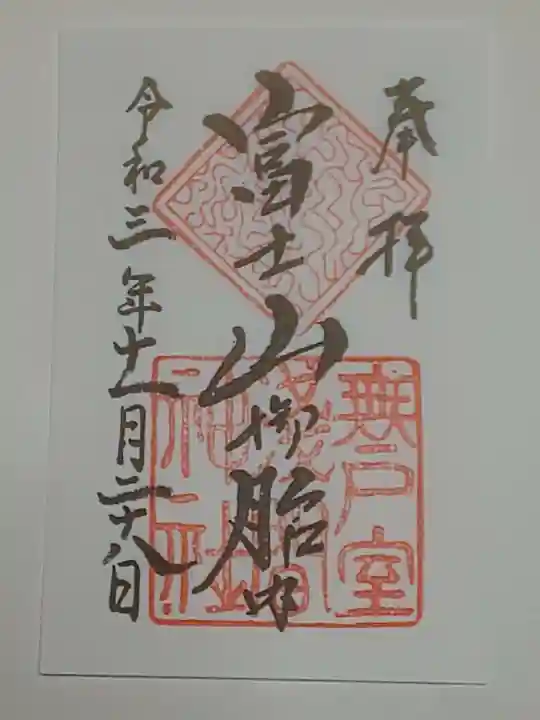 奉拝
富士山御胎内
無戸室
神社
令和三年十一月二十八日